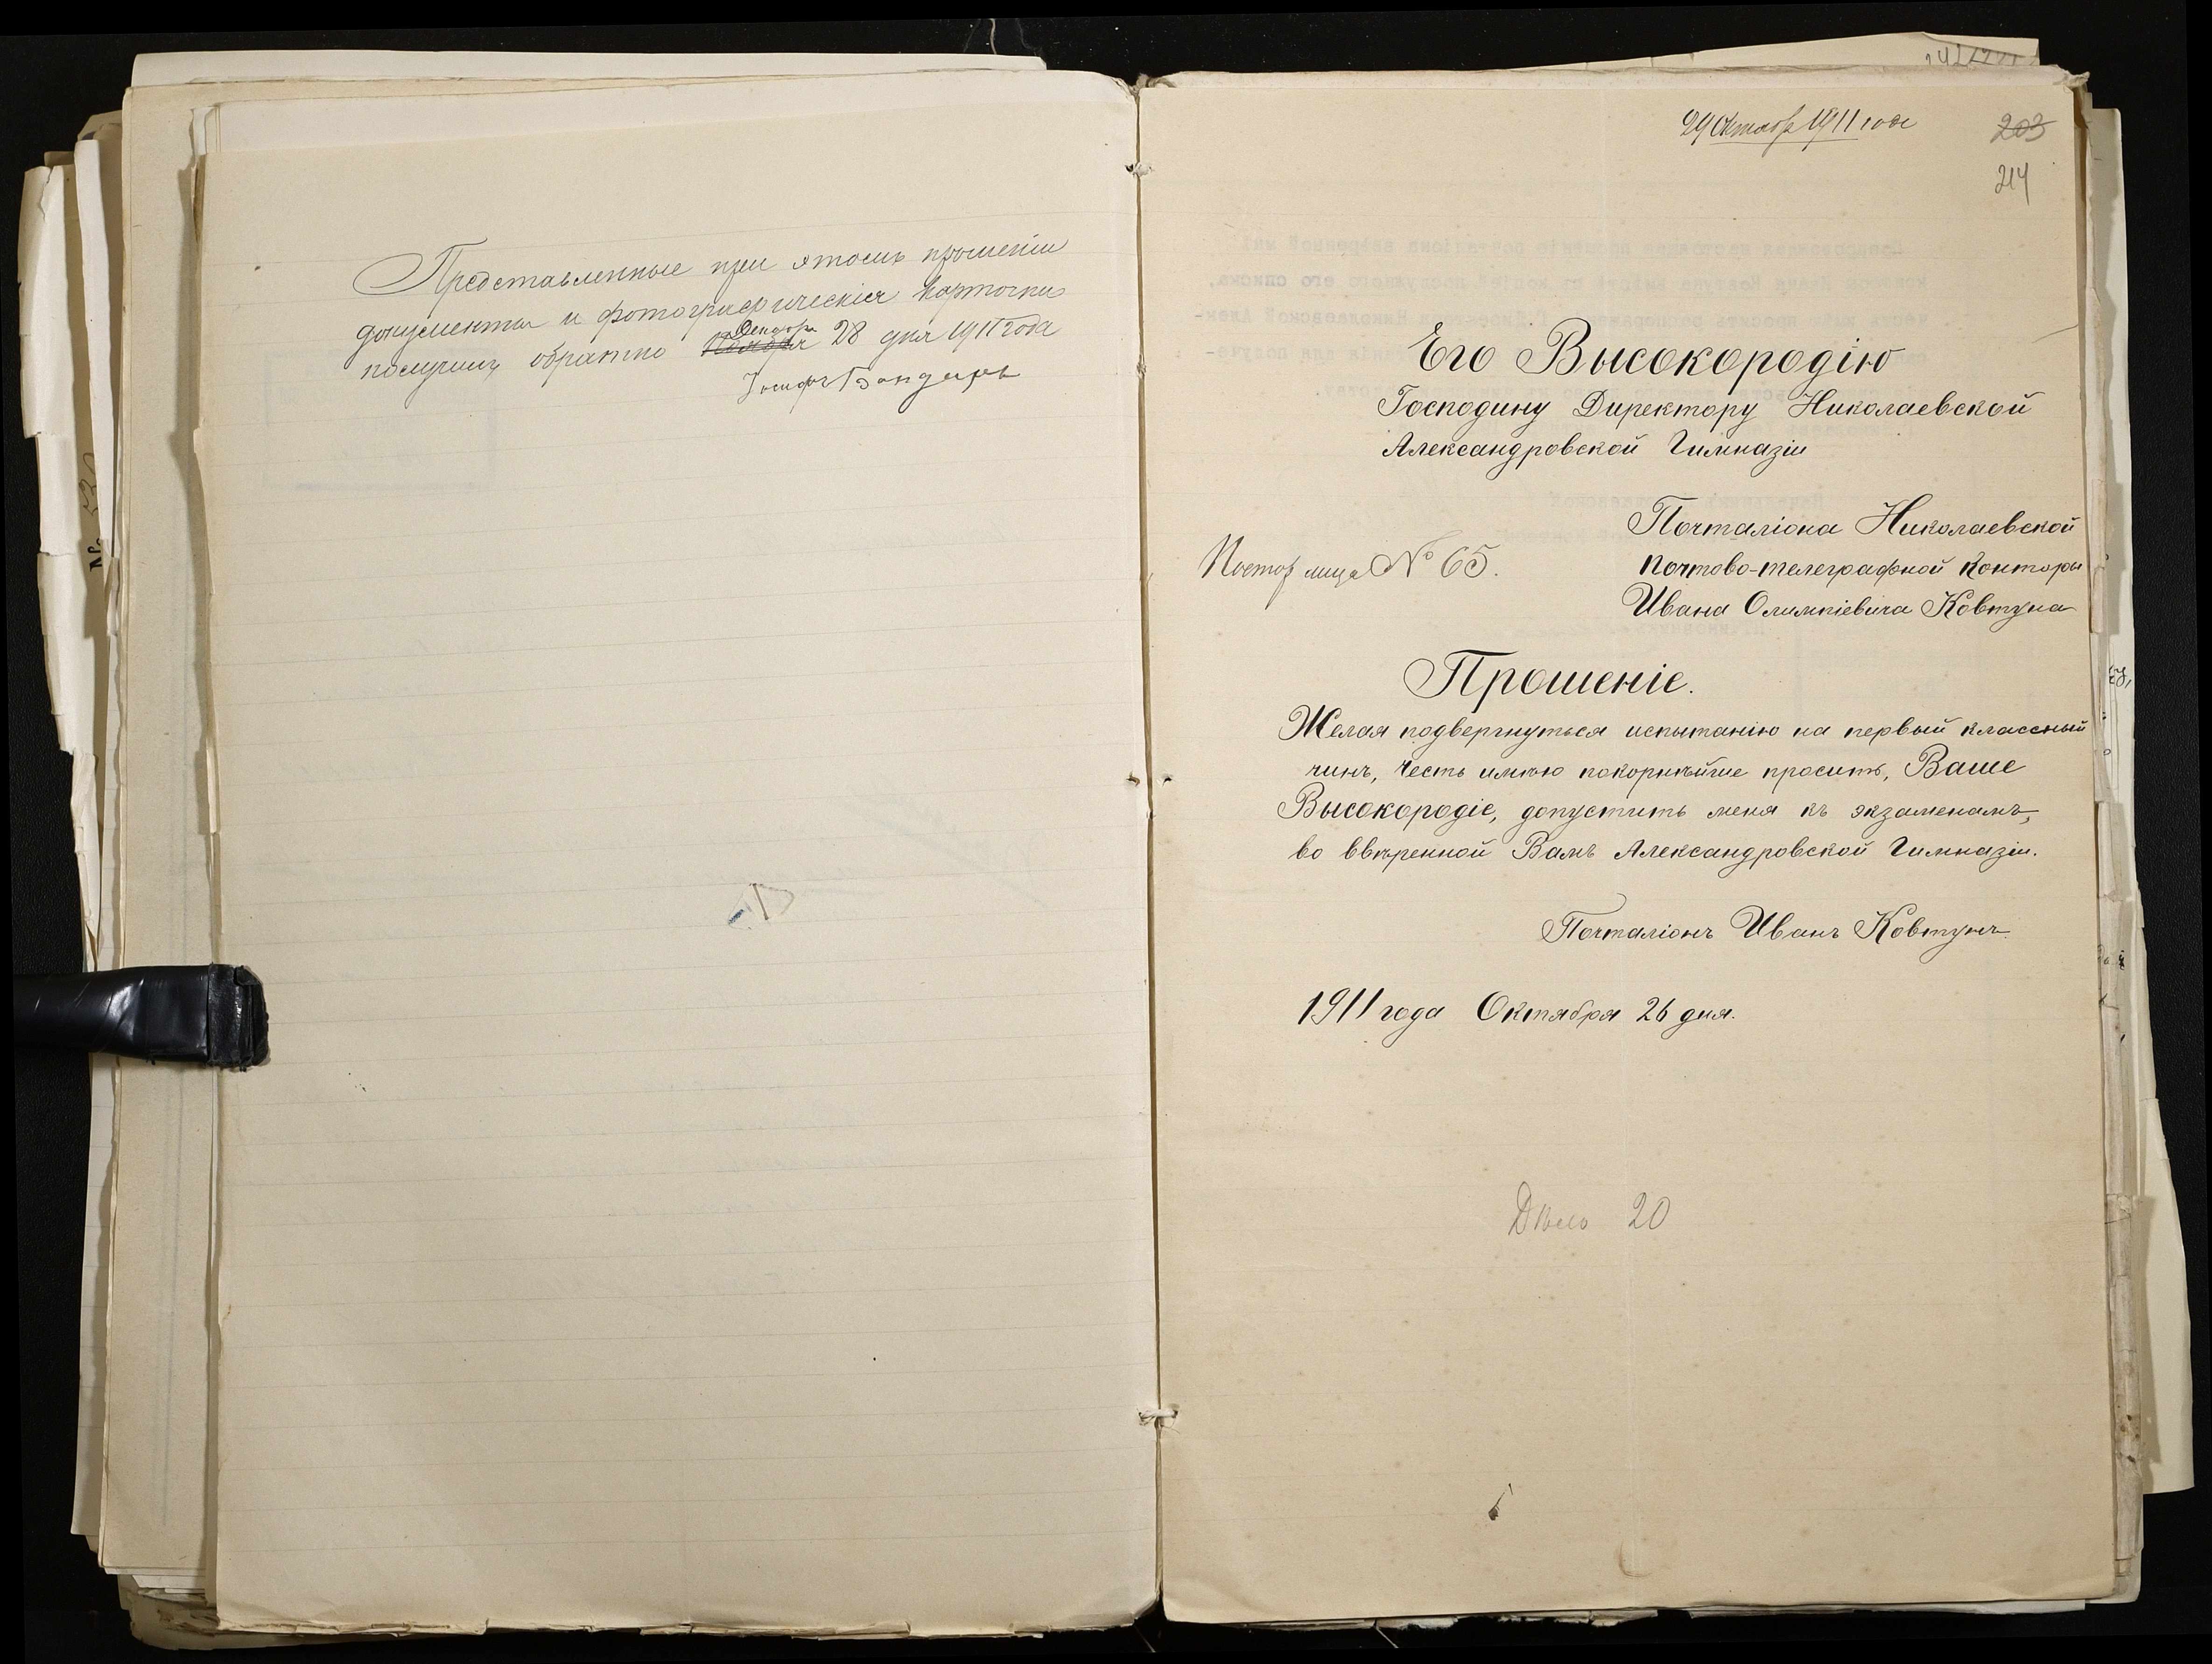 Представленные при этомъ прошеніи
документы и фотографическія карточки
Декабря
получилъ обратно 28 дня 1911 года
Іосифъ Бондарь
29 Октября 1911 года
203
214
Его Высокородію
Господину Директору Николаевской
Александровской Гимназіи
Почталіона Николаевской
Почтово-телеграфной Конторы
Ивана Олимпіевича Ковтуна
Постор. лица № 65.
Прошеніе.
Желая подвергнуться испытанію на первый классный
чинъ, честь имѣю покорнѣйше просить, Ваше
Высокородіе, допустить меня къ экзаменамъ,
во ввѣренной Вамъ Александровской Гимназіи.
Почталіонъ Иванъ Ковтунъ.
1911 года Октября 26 дня.
Дѣло 20